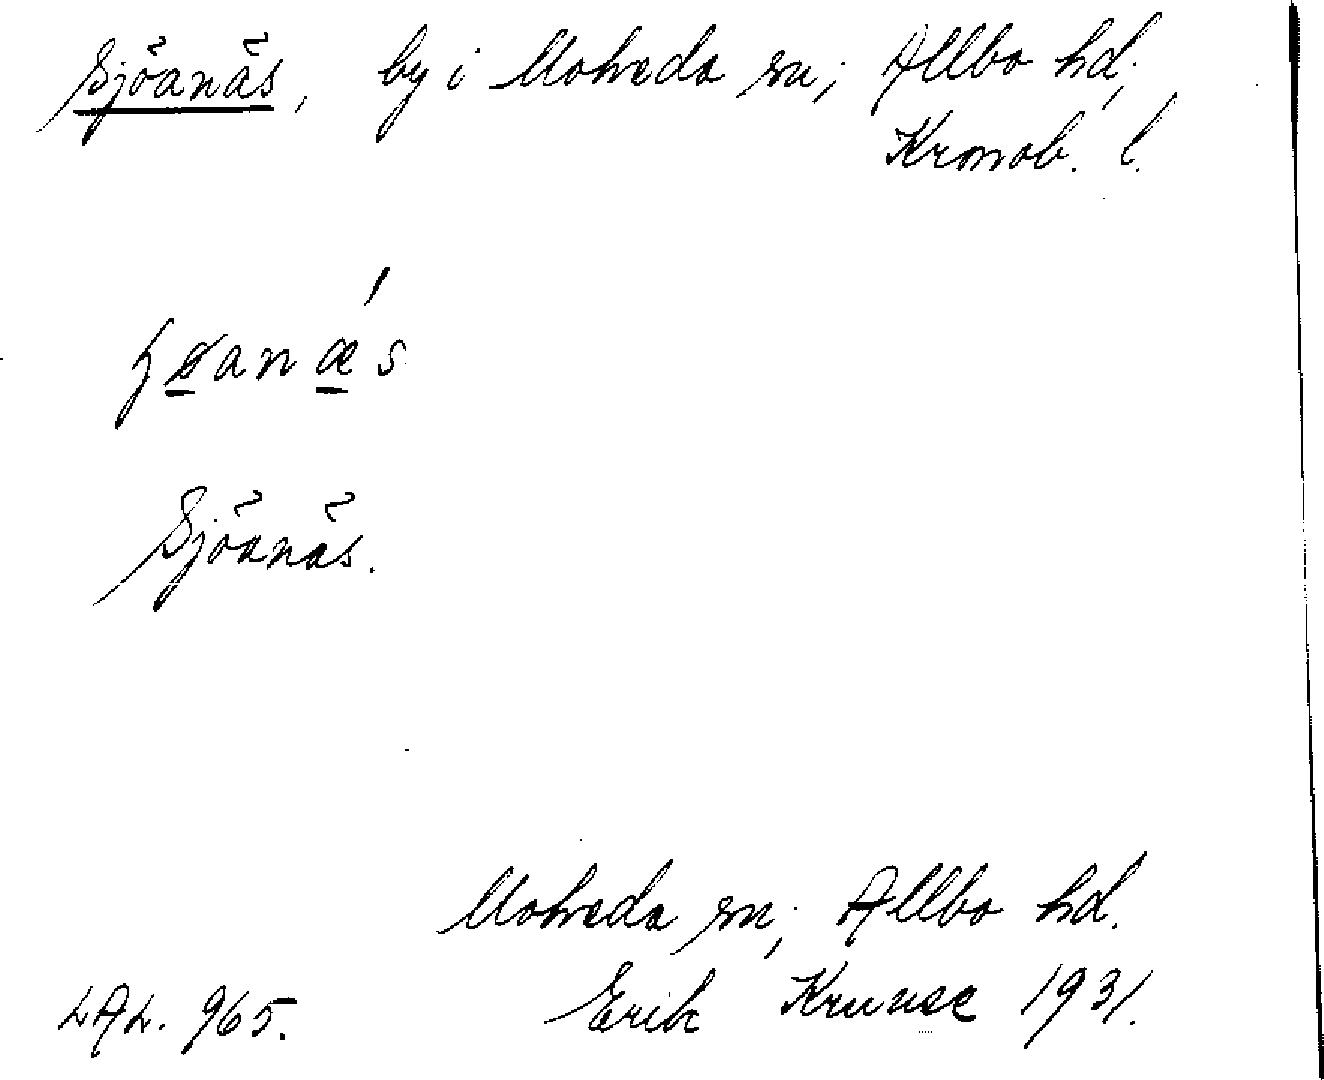 Sjöanäs, by i Moheda sn; Allbo hd,
Kronob. l.
Sjöanäs.
Moheda sn, Allbo hd.
LAL. 965. Erik Kruuse 1931.